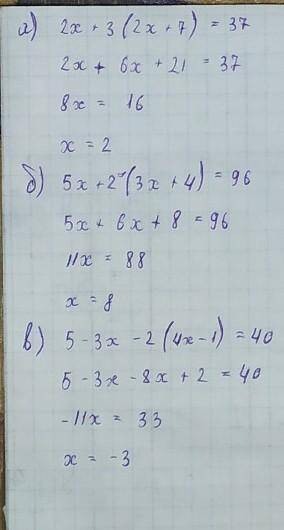 а) 2x + 3 (2x + 7) = 37
2x + 6x + 21 = 37
8x = 16
x = 2
б) 5x + 2 (3x + 4) = 96
5x + 6x + 8 = 96
11x = 88
x = 8
в) 5 - 3x - 2 (4x - 1) = 40
5 - 3x - 8x + 2 = 40
-11x = 33
x = -3